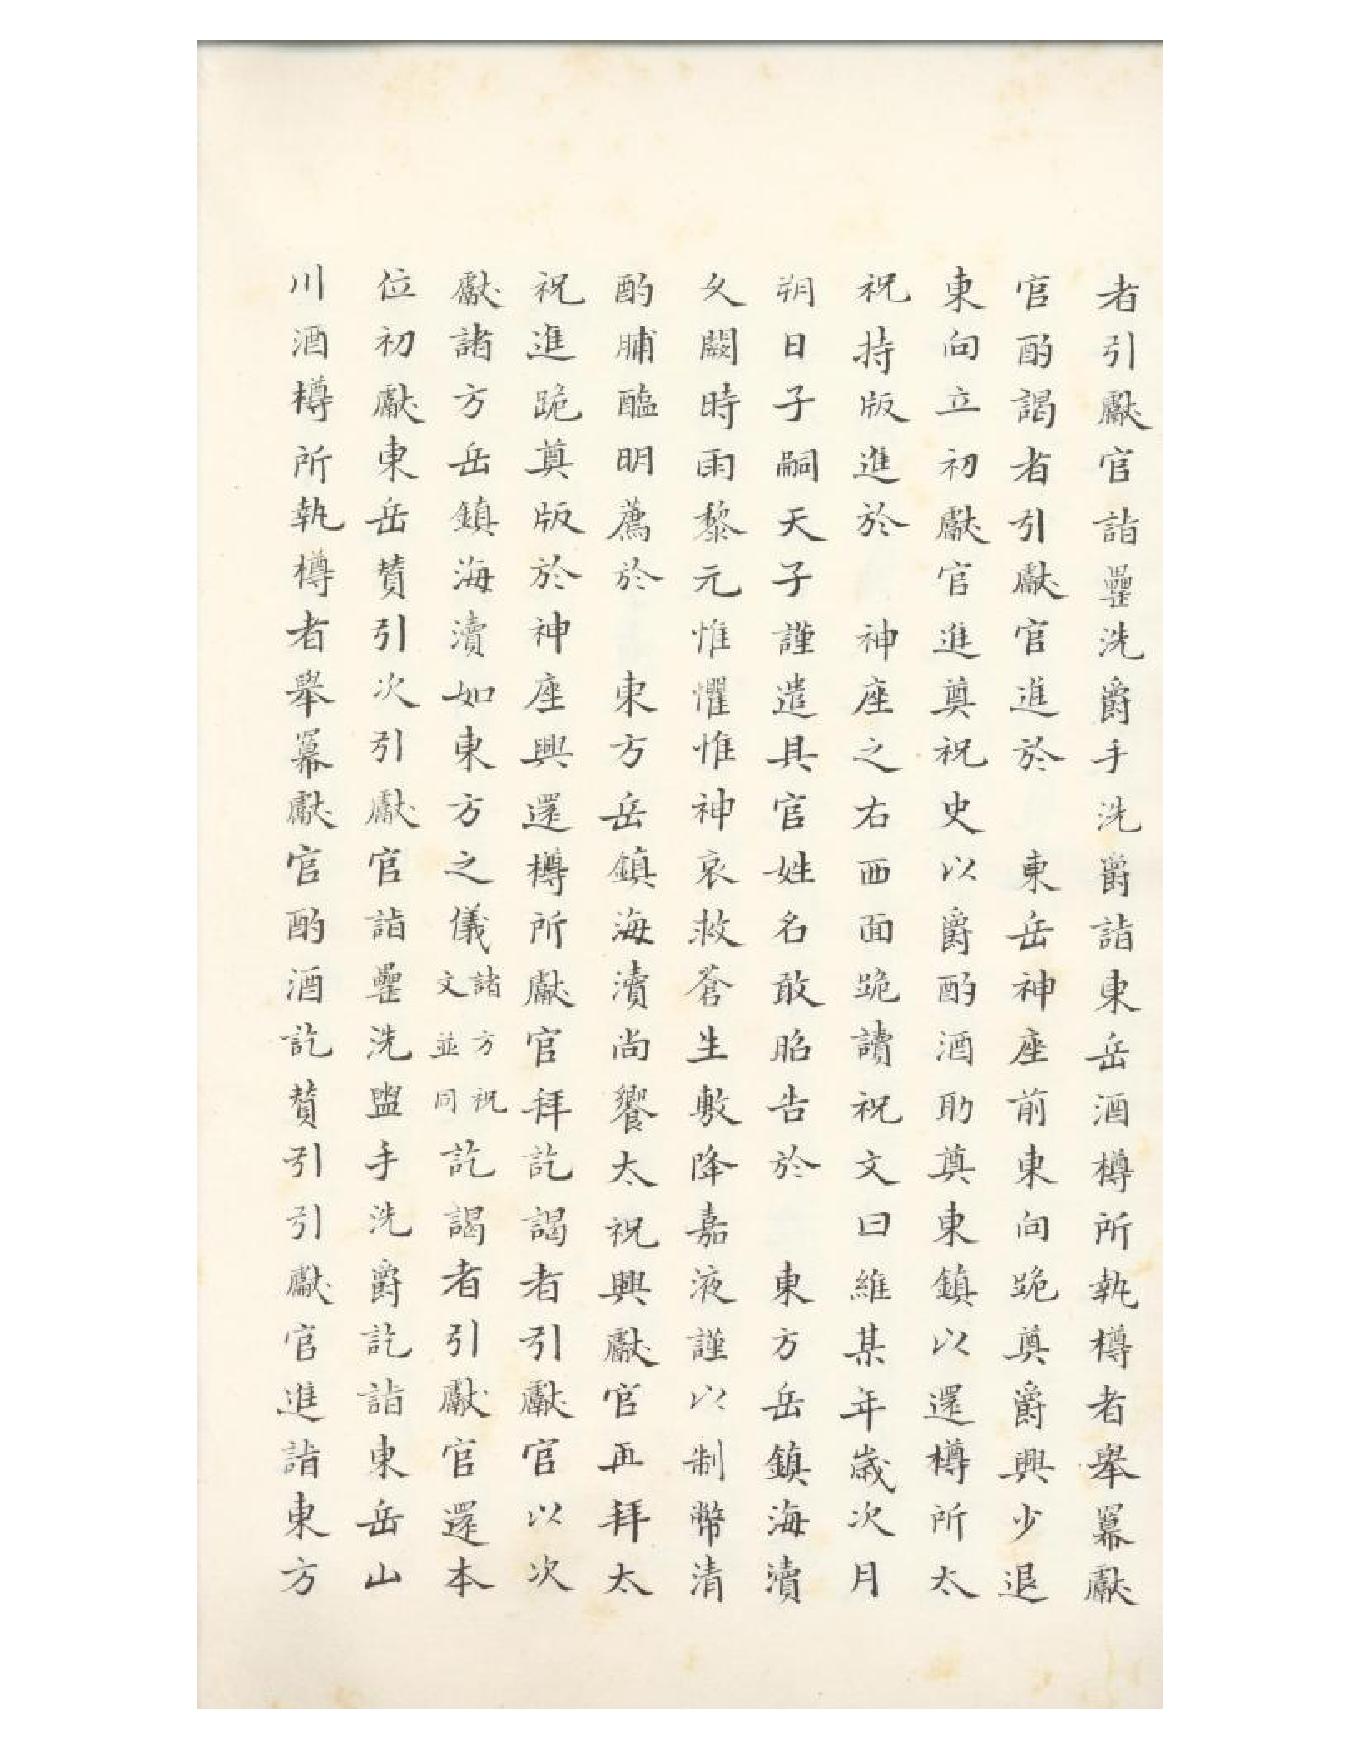 者引獻官詣罍洗爵手洗爵詣東岳酒樽所執樽者舉冪獻
官酌謁者引獻官進於　東岳神座前東向跪奠爵興少退
東向立初獻官進奠祝史以爵酌酒助奠東鎮以還樽所太
祝持版進於　神座之右西面跪讀祝文曰維某年歲次月
朔日子嗣天子謹遣具官姓名敢昭告於　東方岳鎮海瀆
久闕時雨黎元惟懼惟神哀救蒼生敷降嘉液謹以制幣清
酌脯醢明薦於　東方岳鎮海瀆尚饗太祝興獻官再拜太
祝進跪奠版於神座興還樽所獻官拜訖謁者引獻官以次
獻諸方岳鎮海瀆如東方之儀諸方祝文並同訖謁者引獻官還本
位初獻東岳贊引次引獻官詣罍洗盥手洗爵訖詣東岳山
川酒樽所執樽者舉冪獻官酌酒訖贊引引獻官進詣東方